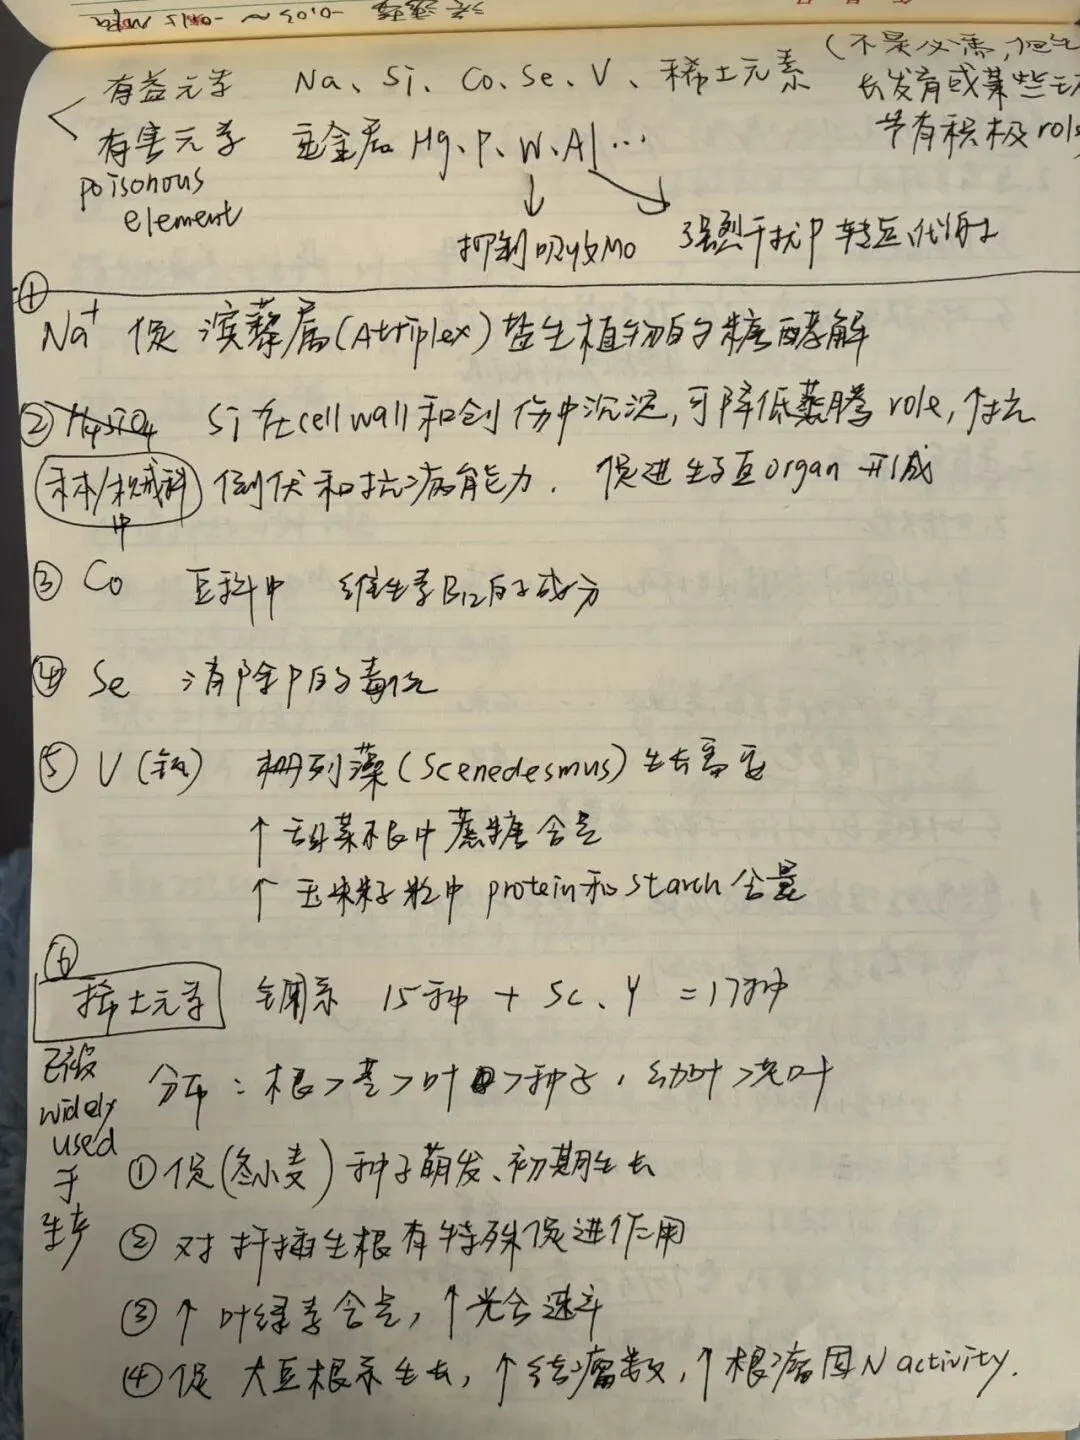 -0.03~ -0.15 MPa
有益元素 Na、Si、Co、Se、V、稀土元素 (不是必需,但生
长发育或某些
带有积极role
有害元素 重金属 Hg、P、W、Al…
poisonous
element
抑制吸收Mo 强烈干扰P转运、代谢
① Na⁺ 促 滨藜属(Atriplex)盐生植物的糖酵解
② H₄SiO₄ Si在cell wall和创伤中沉淀,可降低蒸腾role,↑抗
禾本/木贼科 倒伏和抗病能力. 促进生殖organ形成
中
③ Co 豆科中 维生素B₁₂的成分
④ Se 消除P的毒性
⑤ V(钒) 栅列藻(Scenedesmus)生长需要
↑甜菜根中蔗糖含量
↑玉米籽粒中 protein和starch含量
⑥
稀土元素 镧系 15种 + Sc、Y =17种
已被
widely
used
于
生产
分布:根>茎>叶>种子,幼叶>老叶
①促(冬小麦)种子萌发、初期生长
②对扦插生根有特殊促进作用
③↑叶绿素含量,↑光合速率
④促 大豆根系生长,↑结瘤数,↑根瘤固N activity.